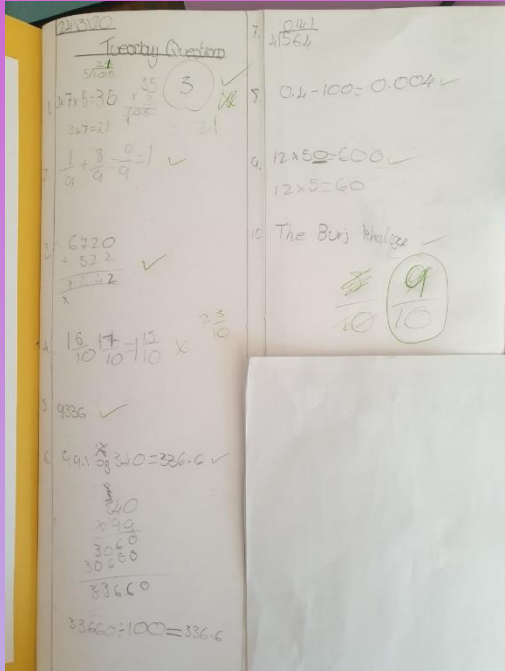 24/3/20
Tuesday Questions
3
1. 3x7x5=35
35
x 3
105
3x7=21
= 21
2. 1/9 + 8/9 = 9/9 = 1 ✓
3. 6720
+ 522
7242
✓
4.
x
5. 9336 ✓
6. 340=336.6 ✓
340
x 99
3060
30600
33660
33660÷100=336.6
7. 041
4)564
8. 0.4÷100=0.004 ✓
9. 12x50=600 ✓
12x5=60
10. The Burj khalifa ✓
9/10